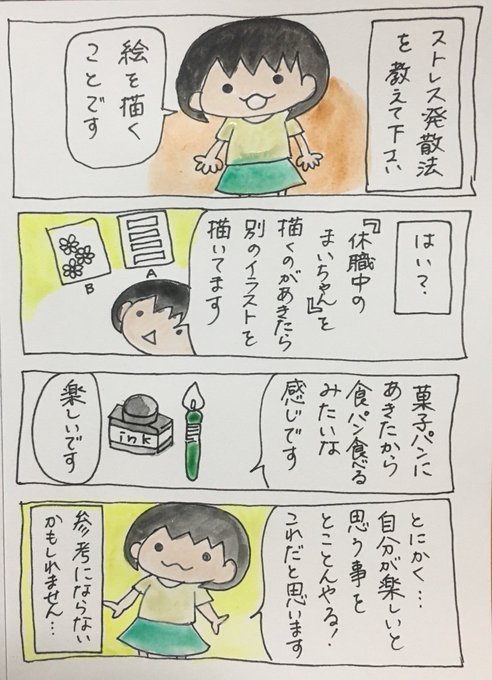 ストレス発散法
を教えて下さい
絵を描く
ことです
はい?
『休職中の
まいちゃん』を
描くのがあきたら
別のイラストを
描いてます
A
B
菓子パンに
あきたから
食パン食べる
みたいな
感じです
ink
楽しいです
とにかく…
自分が楽しいと
思う事を
とことんやる!
これだと思います
参考にならない
かもしれません…